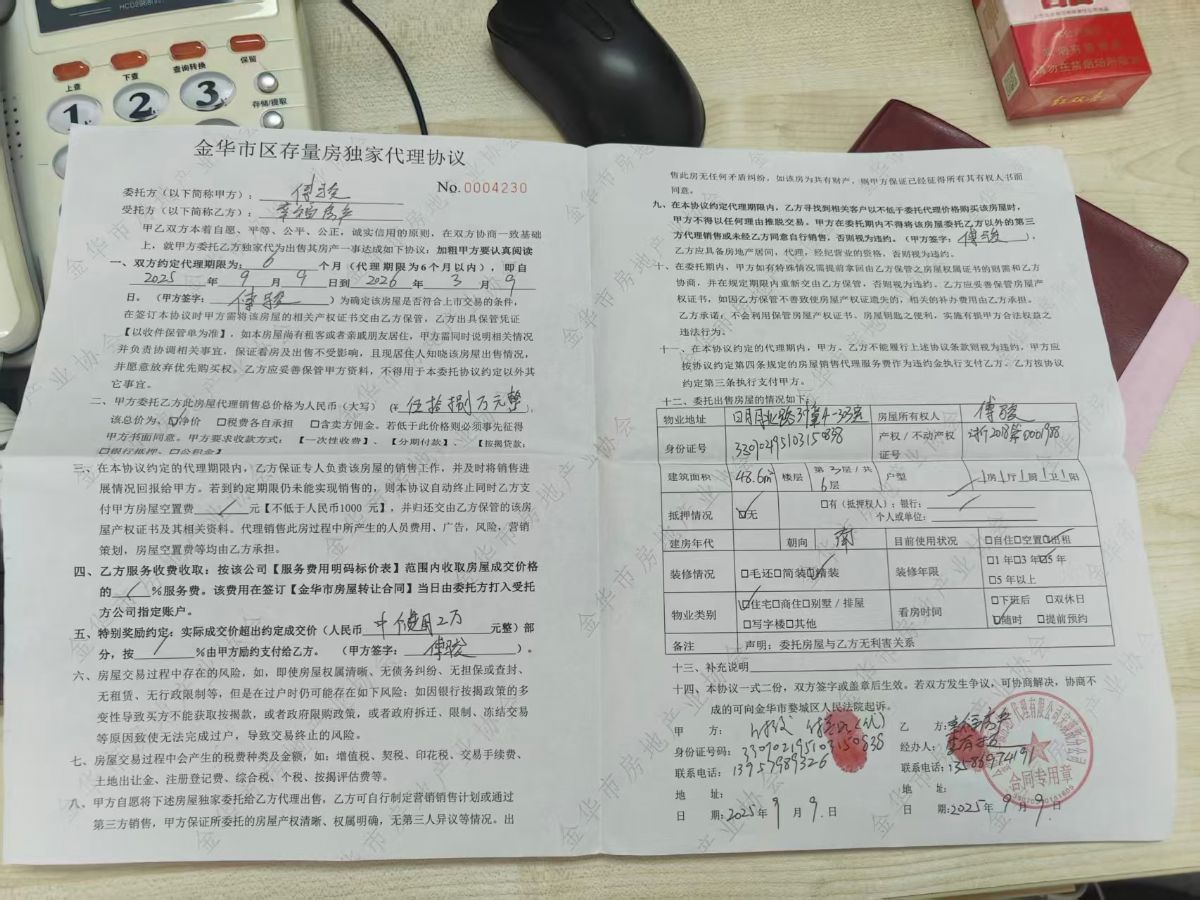 HCD2968
上查
下查
查询转换
保留
存储/提取
1
2
3
请勿在禁烟场所吸烟
金华市区存量房独家代理协议
No. 0004230
委托方（以下简称甲方）：傅骏
受托方（以下简称乙方）：幸福房产
甲乙双方本着自愿、平等、公平、公正，诚实信用的原则，在双方协商一致基础
上，就甲方委托乙方独家代为出售其房产一事达成如下协议：加粗甲方要认真阅读
一、双方约定代理期限为：6 个月（代理期限为6个月以内），即自
2025 年 9 月 9 日到 2026 年 3 月 9
日。（甲方签字：傅骏）为确定该房屋是否符合上市交易的条件，
在签订本协议时甲方需将该房屋的相关产权证书交由乙方保管，乙方出具保管凭证
【以收件保管单为准】，如本房屋尚有租客或者亲戚朋友居住，甲方需同时说明相关情况
并负责协调相关事宜，保证看房及出售不受影响，且现居住人知晓该房屋出售情况，
并愿意放弃优先购买权。乙方应妥善保管甲方资料，不得用于本委托协议约定以外其
它事宜。
二、甲方委托乙方此房屋代理销售总价格为人民币（大写）（¥ 伍拾捌万元整），
该总价为：☑净价 □税费各自承担 □含卖方佣金。若低于此价格则必须事先征得
甲方书面同意。甲方要求收款方式：【一次性收费】、【分期付款】、【按揭贷款：
□银行抵押、□公积金】
三、在本协议约定的代理期限内，乙方保证专人负责该房屋的销售工作，并及时将销售进
展情况回报给甲方。若到约定期限仍未能实现销售的，则本协议自动终止同时乙方支
付甲方房屋空置费 / 元【不低于人民币1000 元】，并归还交由乙方保管的该房
屋产权证书及其相关资料。代理销售此房过程中所产生的人员费用、广告，风险，营销
策划，房屋空置费等均由乙方承担。
四、乙方服务收费收取：按该公司【服务费用明码标价表】范围内收取房屋成交价格
的 / %服务费。该费用在签订【金华市房屋转让合同】当日由委托方打入受托
方公司指定账户。
五、特别奖励约定：实际成交价超出约定成交价（人民币 中介费用2万 元整）部
分，按 / %由甲方励约支付给乙方。（甲方签字：傅骏）。
六、房屋交易过程中存在的风险，如，即使房屋权属清晰、无债务纠纷、无担保或查封、
无租赁、无行政限制等，但是在过户时仍可能存在如下风险：如因银行按揭政策的多
变性导致买方不能获取按揭款，或者政府限购政策，或者政府拆迁、限制、冻结交易
等原因致使无法完成过户，导致交易终止的风险。
七、房屋交易过程中会产生的税费种类及金额，如：增值税、契税、印花税、交易手续费、
土地出让金、注册登记费、综合税、个税、按揭评估费等。
八、甲方自愿将下述房屋独家委托给乙方代理出售，乙方可自行制定营销销售计划或通过
第三方销售，甲方保证所委托的房屋产权清晰、权属明确，无第三人异议等情况。出
售此房无任何矛盾纠纷，如该房为共有财产，则甲方保证已经征得所有其有权人书面
同意。
九、在本协议约定代理期限内，乙方寻找到相关客户以不低于委托代理价格购买该房屋时，
甲方不得以任何理由推脱交易。甲方在委托期内不得将该房委托乙方以外的第三
方代理销售或未经乙方同意自行销售，否则视为违约。（甲方签字：傅骏），
乙方应具备房地产居间，代理，经纪营业的资格，否则视为违约。
十、在委托期内，甲方如有特殊情况需提前拿回由乙方保管之房屋权属证书的则需和乙方
协商，并在规定期限内重新交由乙方保管，否则视为违约。乙方应妥善保管房屋产
权证书，如因乙方保管不善致使房屋产权证遗失的，相关的补办费用由乙方承担。
乙方承诺：不会利用保管房屋产权证书、房屋钥匙之便利，实施有损甲方合法权益之
违法行为。
十一、在本协议约定的代理期内，甲方、乙方不能履行上述协议条款则视为违约，甲方应
按协议约定第四条规定的房屋销售代理服务费作为违约金执行支付乙方。乙方按协议
约定第三条执行支付甲方。
十二、委托出售房屋的情况如下：
物业地址 房屋所有权人 傅骏
身份证号 330702195103150838 产权/不动产权证号
建筑面积 48.6m² 楼层 第 3 层/共 6 层 户型 /房/厅/厨/卫/阳
抵押情况 ☑无 □有（抵押权人）：银行：
个人或单位：
建房年代 朝向 南 目前使用状况 □自住□空置☑出租
装修情况 □毛还□简装☑精装 装修年限 □1年□3年☑5年
□5年以上
物业类别 ☑住宅□商住□别墅/排屋 看房时间 □下班后 □双休日
□写字楼□其他 ☑随时 □提前预约
备注 声明：委托房屋与乙方无利害关系
十三、补充说明
十四、本协议一式二份，双方签字或盖章后生效。若双方发生争议，可协商解决，协商不
成的可向金华市婺城区人民法院起诉。
甲 方：
乙 方：幸福房产
身份证号码：330702195103150838
经办人：
联系电话：13957989326
联系电话：13586974191
地 址：
地 址：
日 期：2025年9月9日
日 期：2025年9月9日
合同专用章